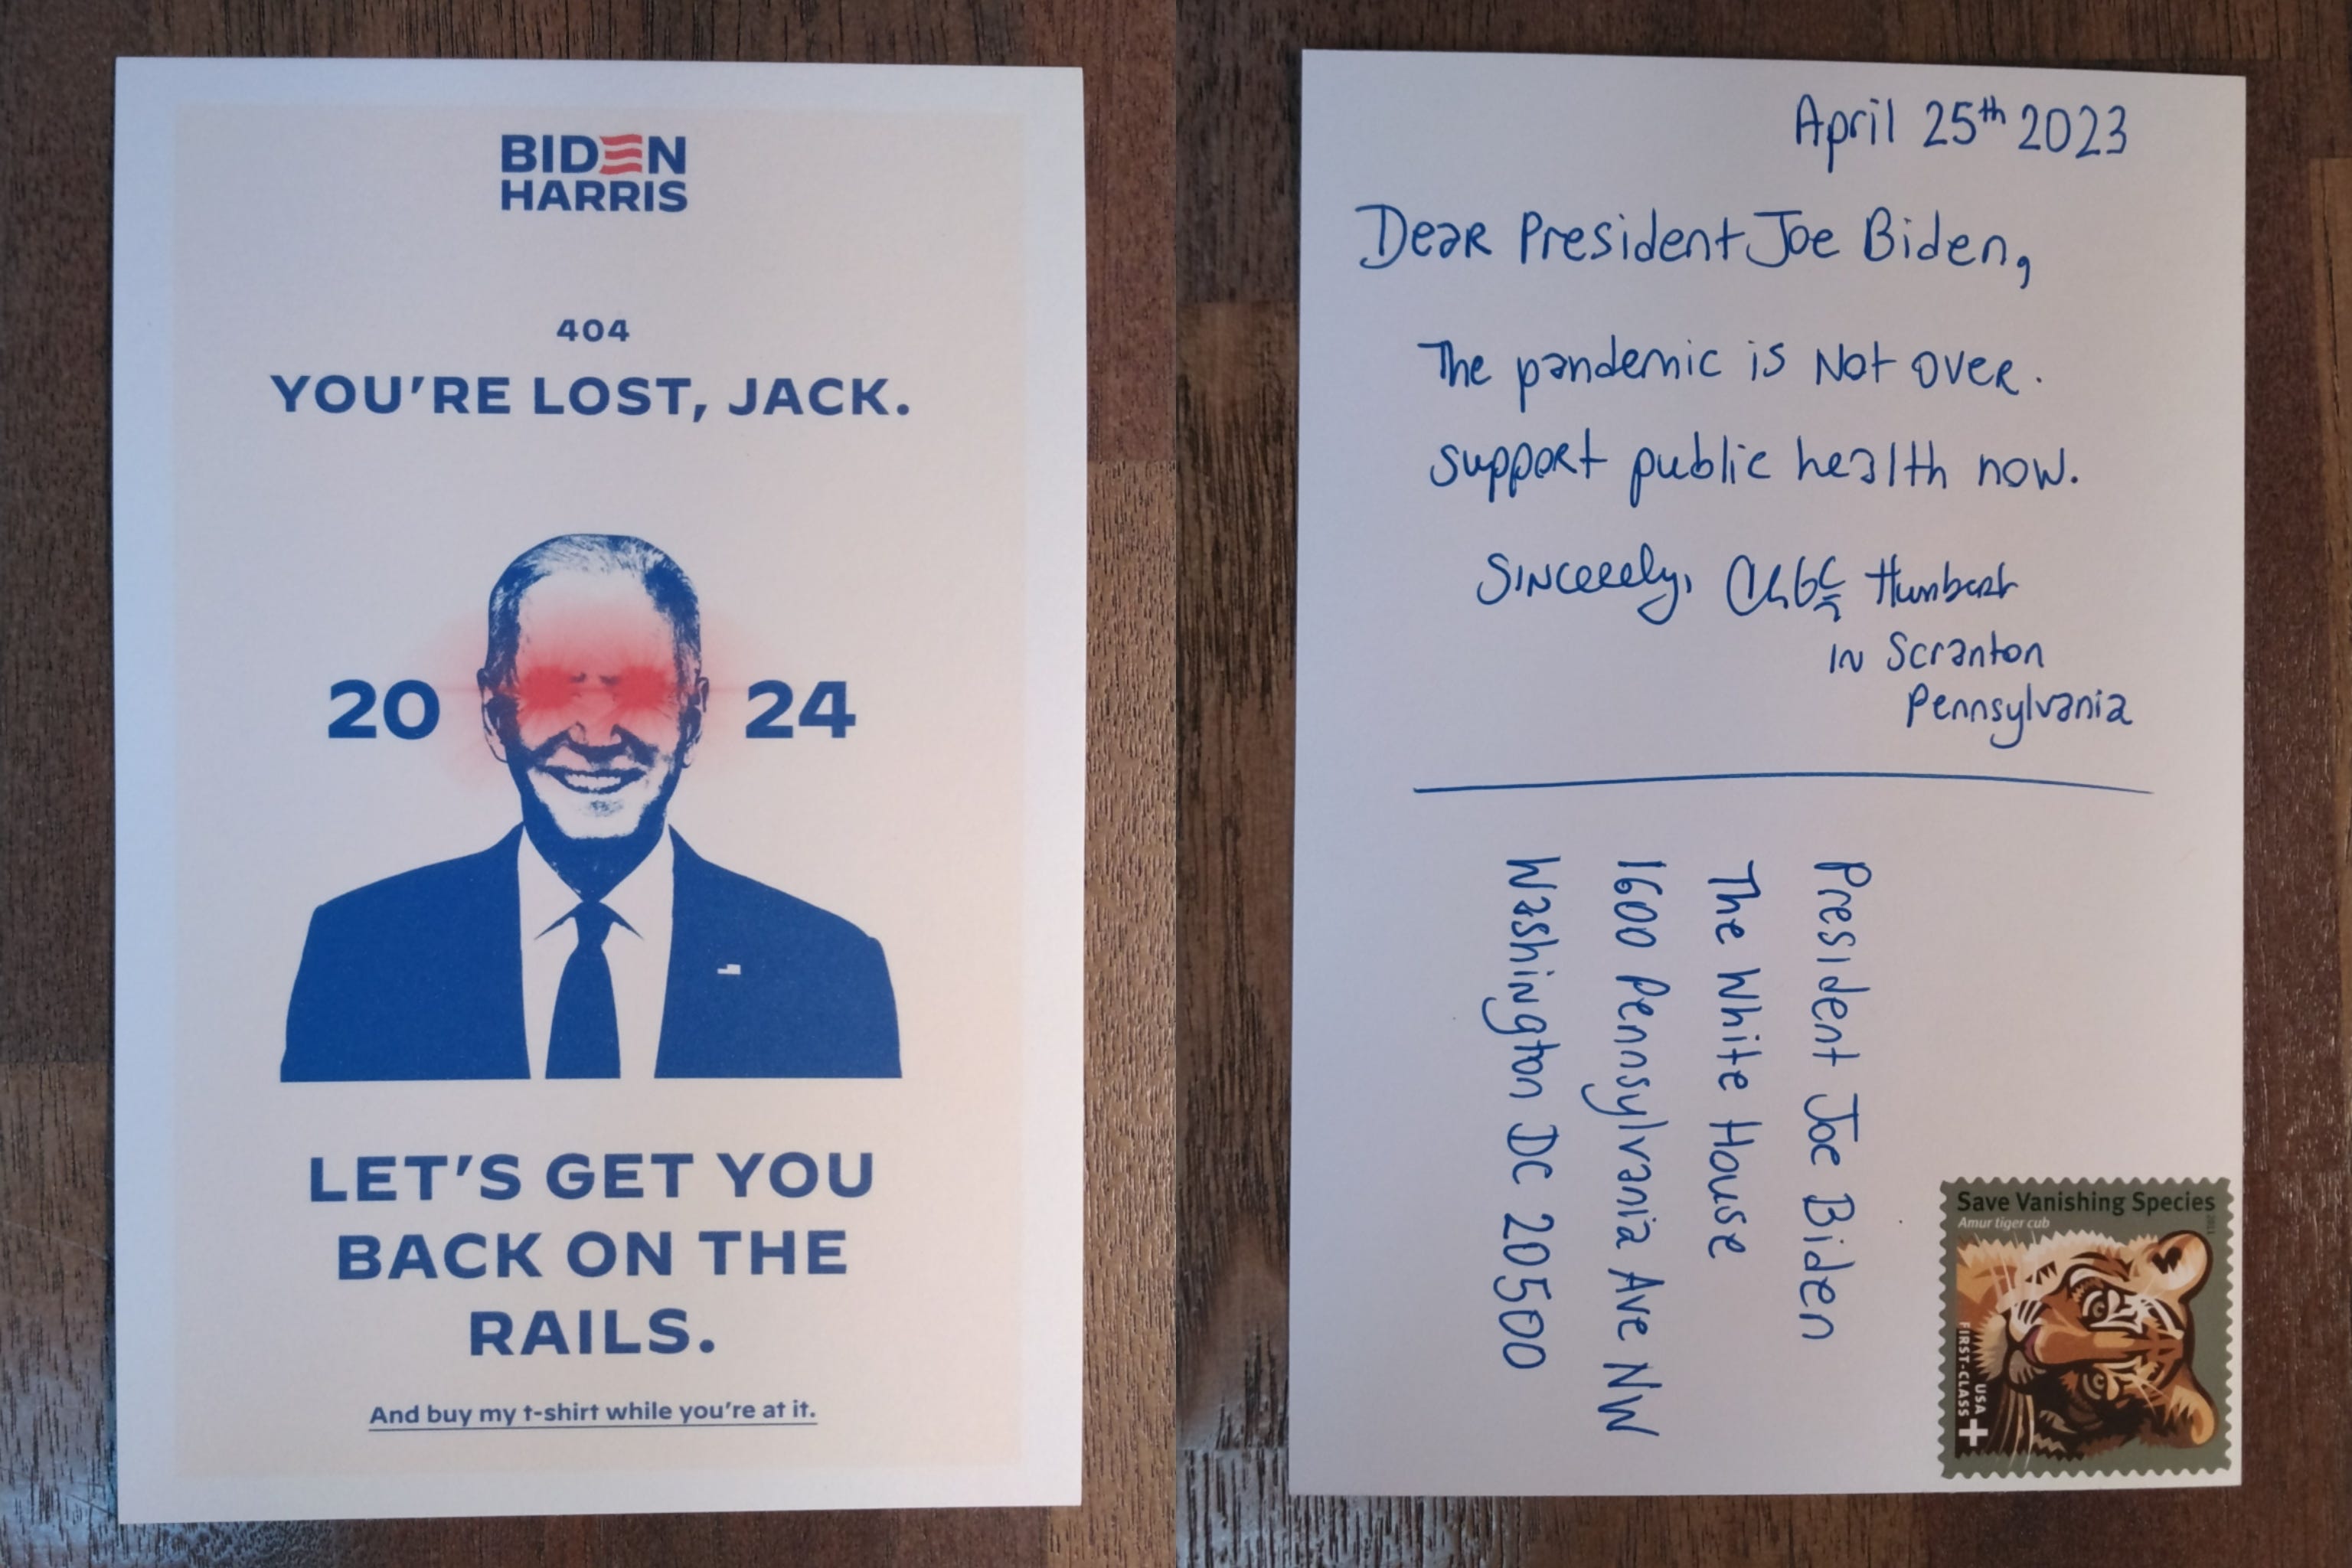 BIDEN
HARRIS
404
YOU'RE LOST, JACK.
20 24
LET'S GET YOU
BACK ON THE
RAILS.
And buy my t-shirt while you're at it.
April 25th 2023
Dear President Joe Biden,
The pandemic is Not over.
support public health now.
Sincerely, Humbert
in Scranton
Pennsylvania
President Joe Biden
The White House
1600 Pennsylvania Ave NW
Washington DC 20500
Save Vanishing Species
Amur tiger cub
2011
USA
FIRST-CLASS
+